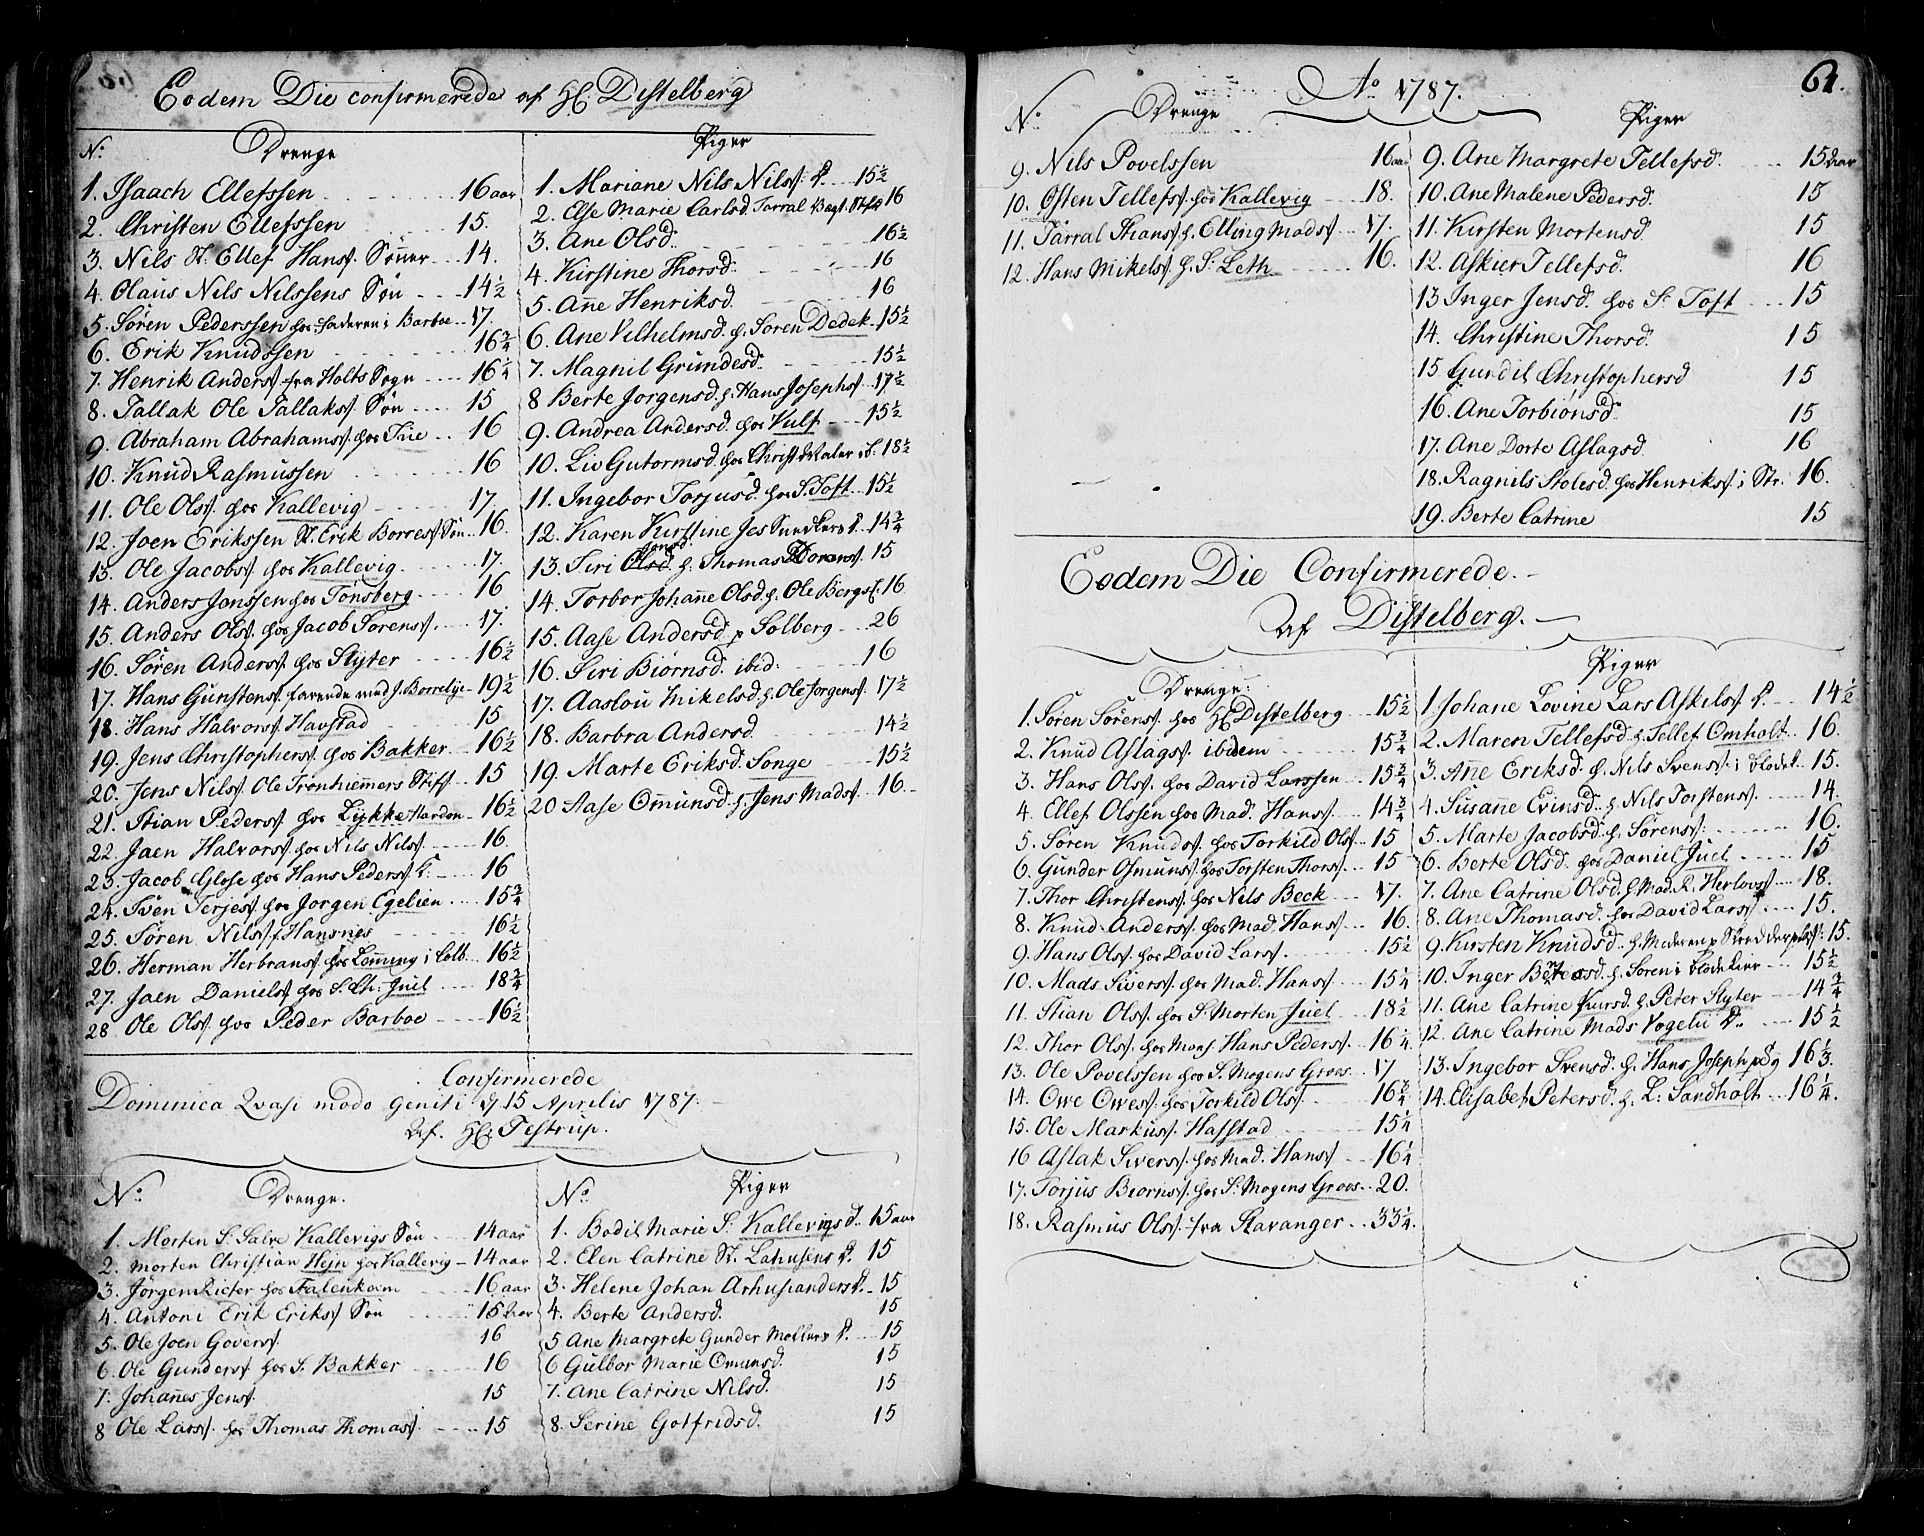 Eodem Die confirmerede af H: Distelberg
No Drenge
1. Isaach Ellefssen 16 aar
2. Christen Ellefssen 15.
3. Nils St. Ellef Hanss. Søner 14.
4. Olaus Nils Nilssens Søn 14 1/2
5. Søren Pederssen hos faderen i Barboe 17.
6. Erik Knudssen 16 3/4
7. Henrik Anderss. fra Holts Sogn 16 1/4
8. Tallak Ole Tallakss. Søn 15
9. Abraham Abrahamss. hos Tue 16
10. Knud Rasmussen 16
11. Ole Olss. hos Kallevig 17.
12. Joen Erikssen St. Erik Borress. Søn 16.
13. Ole Jacobss. hos Kallevig 17.
14. Anders Jonssen hos Tonsberg 16
15. Anders Olss. hos Jacob Sørenss. 17.
16. Søren Anderss. hos Slyter 16 1/2
17. Hans Gunstens. farende med J. Borrelye 19 1/2
18. Hans Halvorss. Havstad 15
19. Jens Christopherss. hos Bakker 16 1/2
20. Jens Nilss. Ole Tronhiemers Stiff 15
21. Stian Pederss. hos Lykke Mardon 16 1/2
22. Jaen Halvorss. hos Nils Nilss. 16.
23. Jacob Glose hos Hans Pederss. 16
24. Sven Terjess. hos Jorgen Egelien 15 3/4
25. Søren Nilss. f. Hansnes 16 1/2
26. Herman Herbranss. hos Loming i Colb. 16 1/2
27. Jaen Danielss. hos S. Ch. Juel 18 3/4
28 Ole Olss. hos Peder Barboe 16 1/2
Piger
1. Mariane Nils Nilss. D. 15 1/2
2. Else Marie Carlsd. Tarral Bagt. 16
3. Ane Olsd. 16 1/2
4. Kirstine Thorsd. 16
5. Ane Henriksd. 16
6. Ane Vilhelmsd. h. Søren Dedek 15 1/2
7. Magnil Grundesd. 15 1/2
8 Berte Jorgensd. h. Hans Josephss. 17 1/2
9. Andrea Andersd. hos Vulf 15 1/2
10. Liv Gutormsd. hos Christ. Maler 18 1/2
11. Ingebor Torjusd. hos S. Toft 15 1/2
12. Karen Kirstine Jes Snedkers D. 14 3/4
13. Siri Jonsd. h. Thomas Thorenss. 15
14. Torbor Johane Olsd. h. Ole Bergss. 16
15. Aase Andersd. p Solberg 26
16. Siri Biørnsd. ibid. 16
17. Aaslou Mikelsd. h. Ole Jorgenss. 17 1/2
18. Barbra Andersd. 14 1/2
19. Marte Eriksd. Songe 15 1/2
20 Aase Omunsd. h. Jens Madss. 16.
Confirmerede
Dominica Qvasi modo Geniti d. 15 Aprilis 1787.
Af. H: Testrup.
No Drenge.
1. Morten S. Salve Kallevigs Søn 14 aar
2. Morten Christian Hejn hos Kallevig 14 aar
3. Jørgen Ricter hos Falenkam 16 aar
4. Antoni Erik Erikss. Søn 15 aar
5. Ole Joen Goverss. 16
6. Ole Gunderss. hos S. Bakker 16
7. Johanes Jenss. 15
8 Ole Larss. hos Thomas Thomass. 15
No Piger
1. Bodil Marie S. Kallevigs D. 15 aar
2. Elen Catrine St. Lahusens D. 15
3. Helene Johan Arhusianders D. 15
4. Berte Andersd. 15
5 Ane Margrete Gunder Mollers D. 15
6 Gulbor Marie Omunsd. 15
7. Ane Catrine Nilsd. 15
8. Serine Gotfridsd. 15
Ao 1787.
61.
No Drenge
9. Nils Povelssen 16 aar
10. Osten Tellefss. hos Kallevig 18.
11. Tarral Hanss. h. Elling Madss. 17.
12. Hans Mikelss. h. S. Leth 16.
Piger
9. Ane Margrete Tellefsd. 15 aar
10. Ane Malene Pedersd. 15
11. Kirsten Mortensd. 15
12. Askier Tellefsd. 16
13 Inger Jensd. hos S. Toft 15
14. Christine Thorsd. 15
15 Gundil Christophersd 15
16. Ane Torbionsd. 15
17. Ane Dorte Aslagsd. 16
18. Ragnils Stolesd. hos Henrikss. i Str. 16.
19. Berte Catrine 15
Eodem Die Confirmerede.
Af Distelberg.
Drenge.
1. Søren Sørenss. hos H: Distelberg 15 1/2
2. Knud Aslagss. ibidem 15 3/4
3. Hans Olss. hos David Larssen 15 3/4
4. Ellef Olssen hos Mad. Hanss. 14 3/4
5. Søren Knudss. hos Torkild Olss. 15
6. Gunder Osmunss. hos Torsten Thorss. 15
7. Thor Christenss. hos Nils Beck 17.
8. Knud Anderss. hos Mad. Hanss. 16.
9. Hans Olss. hos David Larss. 15 1/2
10. Mads Siverss. hos Mad. Hanss. 15 1/4
11. Stian Olss. hos S. Morten Juel 18 1/2
12. Thor Olss. hos Mons. Hans Pederss. 16 1/4
13. Ole Povelssen hos S. Mogens Groos 17
14. Owe Owess. hos Torkild Olss. 16 3/4
15. Ole Markuss. Hafstad 15 1/4
16 Aslak Siverss. hos Mad. Hanss. 16 1/4
17. Torjus Biornss. hos S. Mogens Groos 20.
18. Rasmus Olss. fra Stavanger 33 1/4.
Piger
1. Johane Lovine Lars Askelss. D. 14 1/2
2. Maren Tellefsd. h. Tellef Omholt 16.
3. Ane Eriksd. h. Nils Svenss. i Blodek. 15.
4. Susane Evinsd. h. Nils Torstenss. 14.
5. Marte Jacobsd. h. Sørenss. 16.
6. Berte Olsd. hos Daniel Juel 15
7. Ane Catrine Olsd. h. Mad. R. Herlovss. 18.
8. Ane Thomasd. hos David Larss. 15.
9. Kirsten Knudsd. h. Moderen p 15.
10. Inger Bentesd. h. Soren i Blodekier 15 1/2
11. Ane Catrine Kursd. h. Peter Slyter 14 3/4
12. Ane Catrine Mads Vogelii D. 15 1/2
13. Ingebor Svensd. h. Hans Joseph 16 1/3.
14. Elisabet Petersd. h. L. Sandholt 16 1/4.